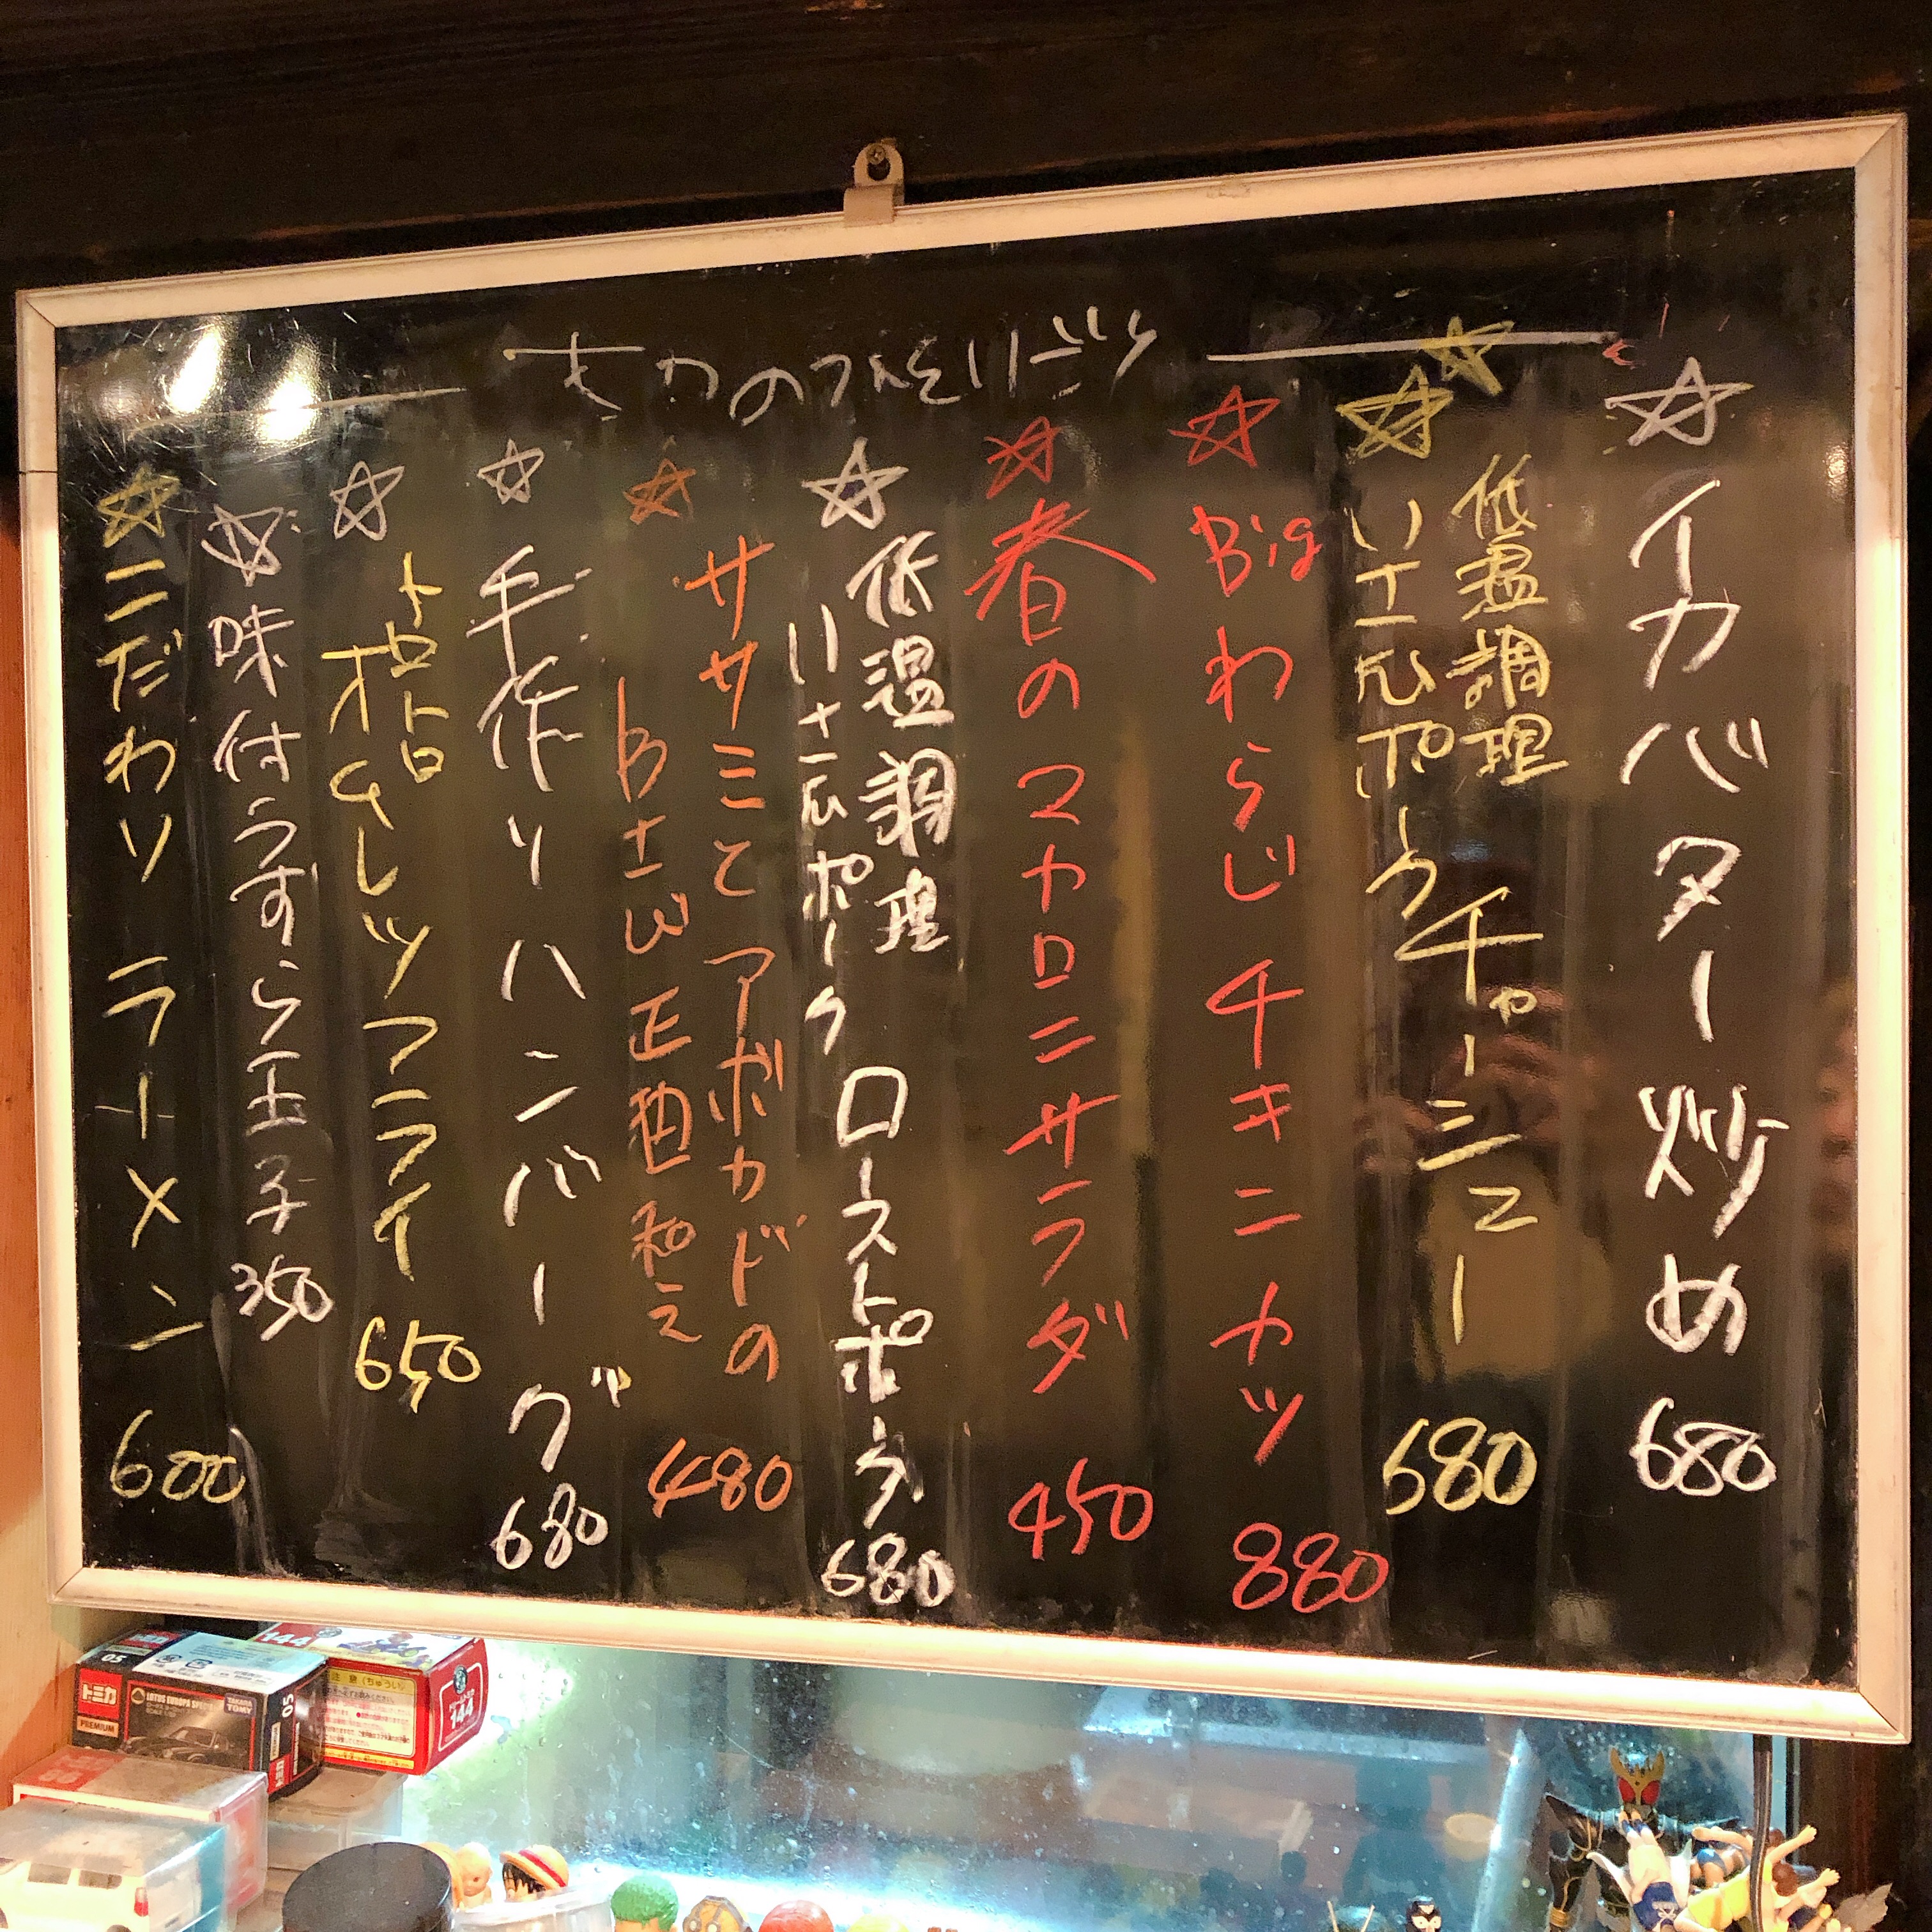 ☆イカバター炒め 680
☆低温調理
ポーク チャーシュー 580
☆Bigわらじチキンカツ 880
☆春のマカロニサラダ 450
☆低温調理
ポーク ローストポーク 680
☆ササミとアボカドの
わさび正油和え 480
☆手作りハンバーグ 680
☆トロトロ
オムレツフライ 650
☆味付うずら玉子 350
☆こだわりラーメン 600
05
トミカ
PREMIUM
LOTUS EUROPA SPECIAL
TAKARA TOMY
05
144
144